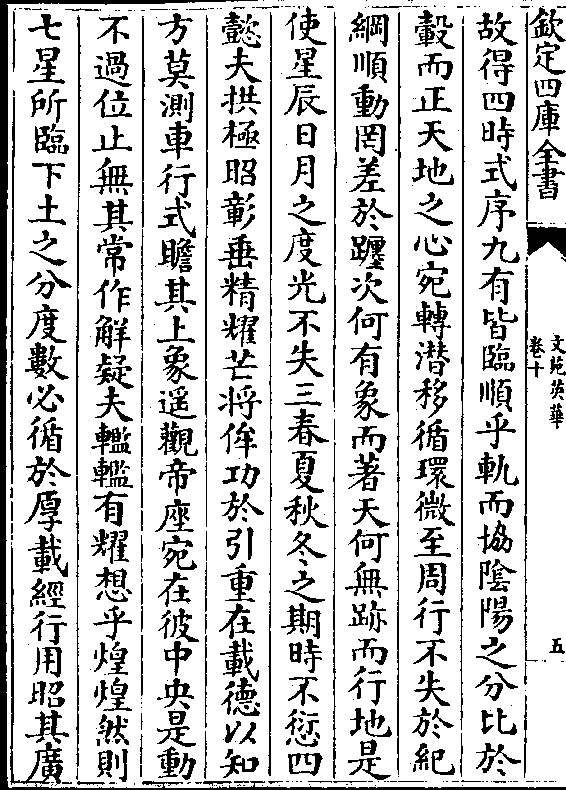 欽定四庫全書
文苑英華
卷十
五
故得四時式序九有皆臨順乎軌而協陰陽之分比於
轂而正天地之心宛轉潜移循環微至周行不失於紀
綱順動罔差於躔次何有象而著天何無跡而行地是
使星辰日月之度光不失三春夏秋冬之期時不愆四
懿夫拱極昭彰垂精耀芒将侔功於引重在載德以知
方莫測車行式瞻其上象遥觀帝座宛在彼中央是動
不過位止無其常作解疑夫轞轞有耀想乎煌煌然則
七星所臨下土之分度數必循於厚載經行用昭其廣